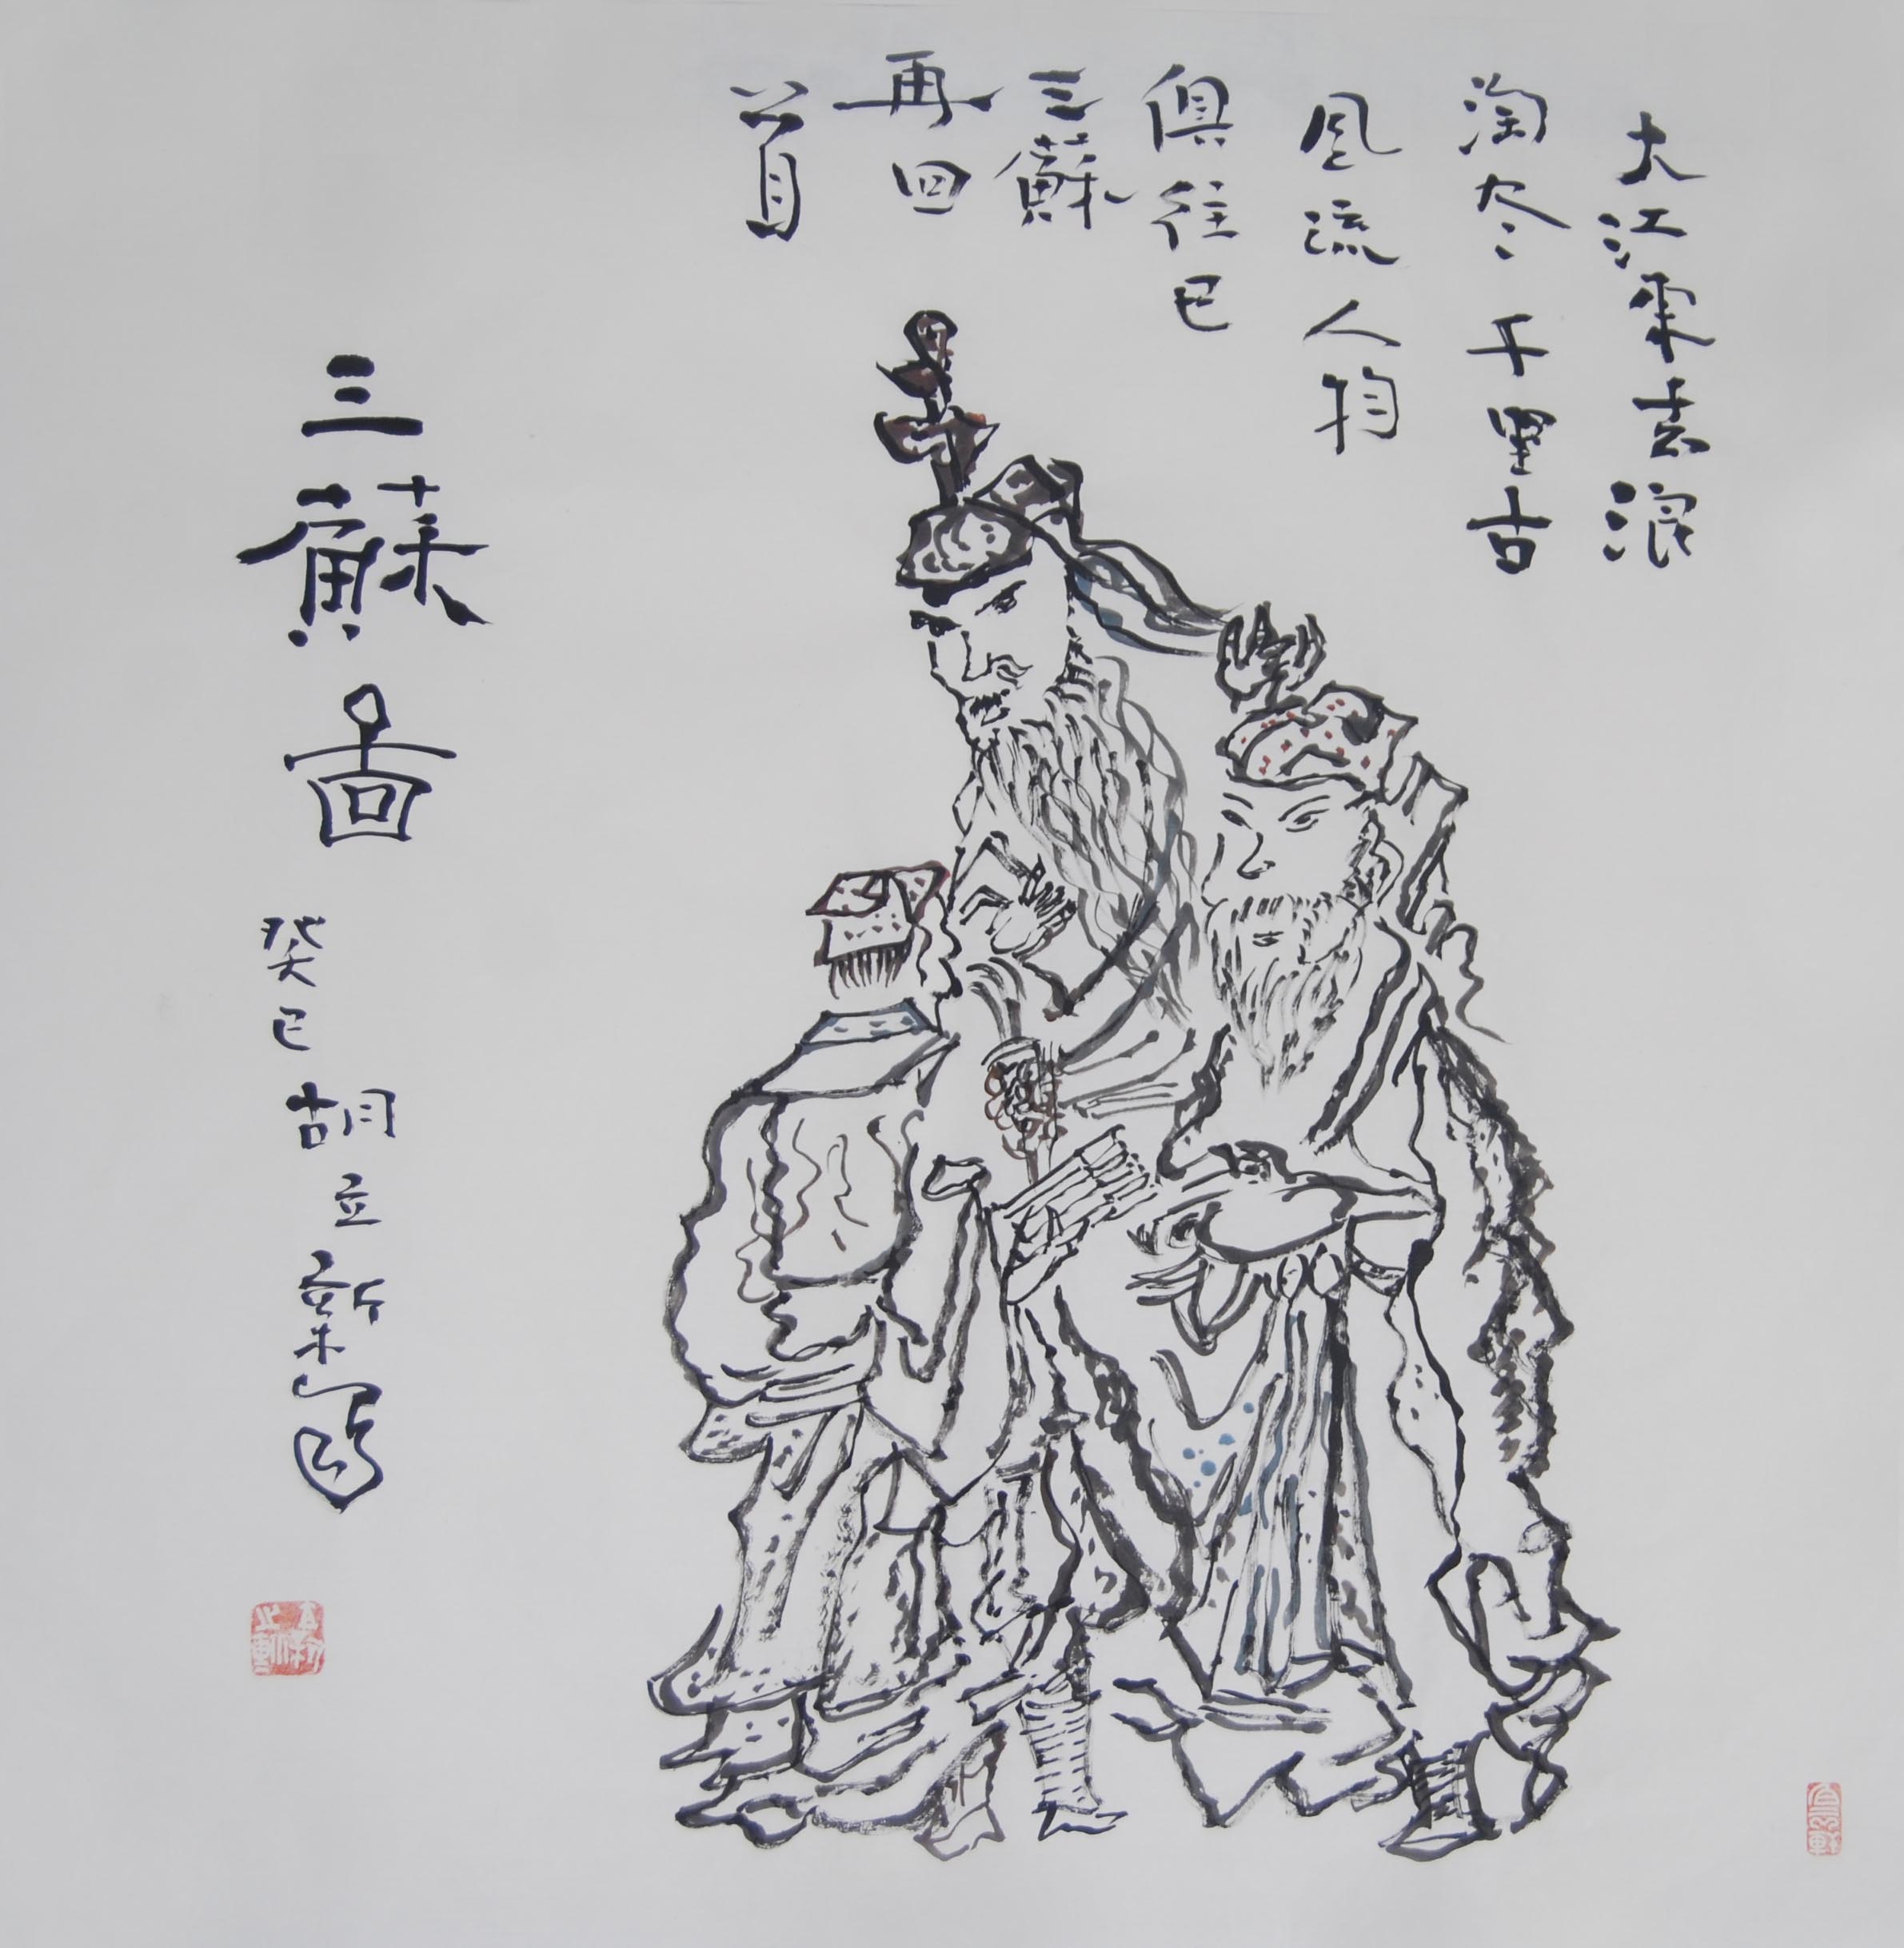 大江東去浪
淘尽千里古
風流人物
俱往已
三蘇
再回
首
三蘇圖
癸巳胡立新寫